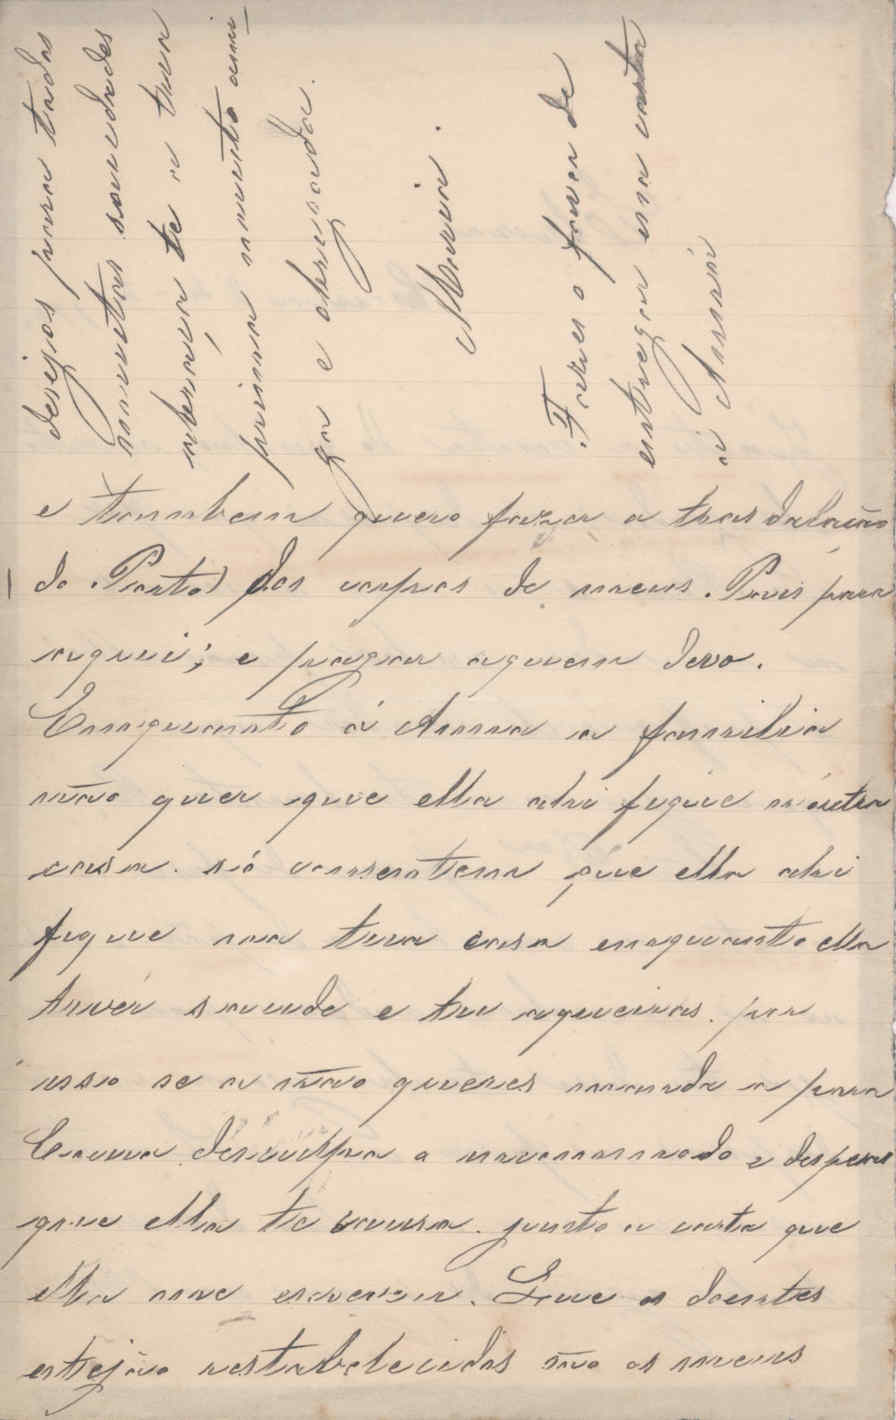 e tambem quero fazer a trasdalação
do Porto dos corpos de meus Paes para
aqui; e pagar aquem devo.
Emquanto á Anna a familia
não quer que ella ahi fique n'outra
casa. só consentem que ella ahi
fique na tua casa enquanto ella
tiver saude e tu aqueiras. por
isso se a não queres manda a para
Cauma desculpa o encommodo e despesas
que ella te causa. junto a carta que
ella me escreveu. Que os doentes
estejão restabelecidos são os meus
desejos para todos
muitas saudades
abraça te a tua
prima muito ami-
ga e obrigada.
Maria.
Fazes o favor de
entregar essa carta
á Annna